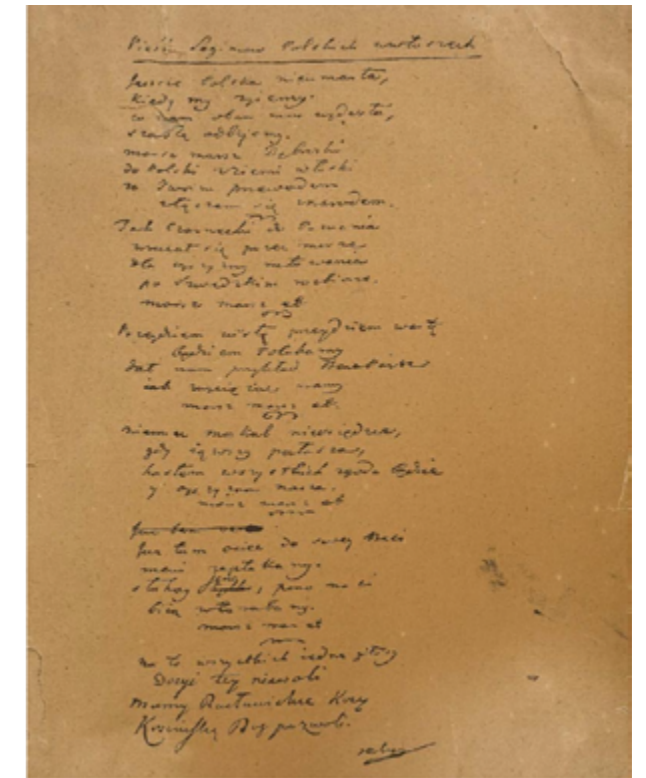 Pieśń Legionów Polskich we włoszech
Jeszcze Polska nieumarła,
kiedy my żyiemy.
co nam obca moc wydarła,
szablą odbiiemy.
marsz marsz Dąbrowski
do Polski z ziemi włoski
za Twoim przewodem
złączem się znarodem.
Jak Czarnecki do Poznania
wracał się przez morze
dla oyczyzny ratowania
po Szwedzkim rozbiorze.
marsz marsz et
Przeydziem wisłę przeydziem wartę
będziem Polakamy
dał nam przykład Bonaparte
iak zwyciężac mamy
marsz marsz et.
niemiec moskal nieosiędzie,
gdy iąwszy pałasza,
hasłem wszystkich zgoda będzie
y oyczyzna nasza.
marsz marsz et
Juz tam
Juz tam ociec do swey Basi
mowi zapłakany.
słuchay, pono nasi
biią w tarabany.
marsz mar et
na to wszystkich iedne głosy
Dosyć tey niewoli
mamy Racławickie Kosy
Kosciuszkę Bog pozwoli.